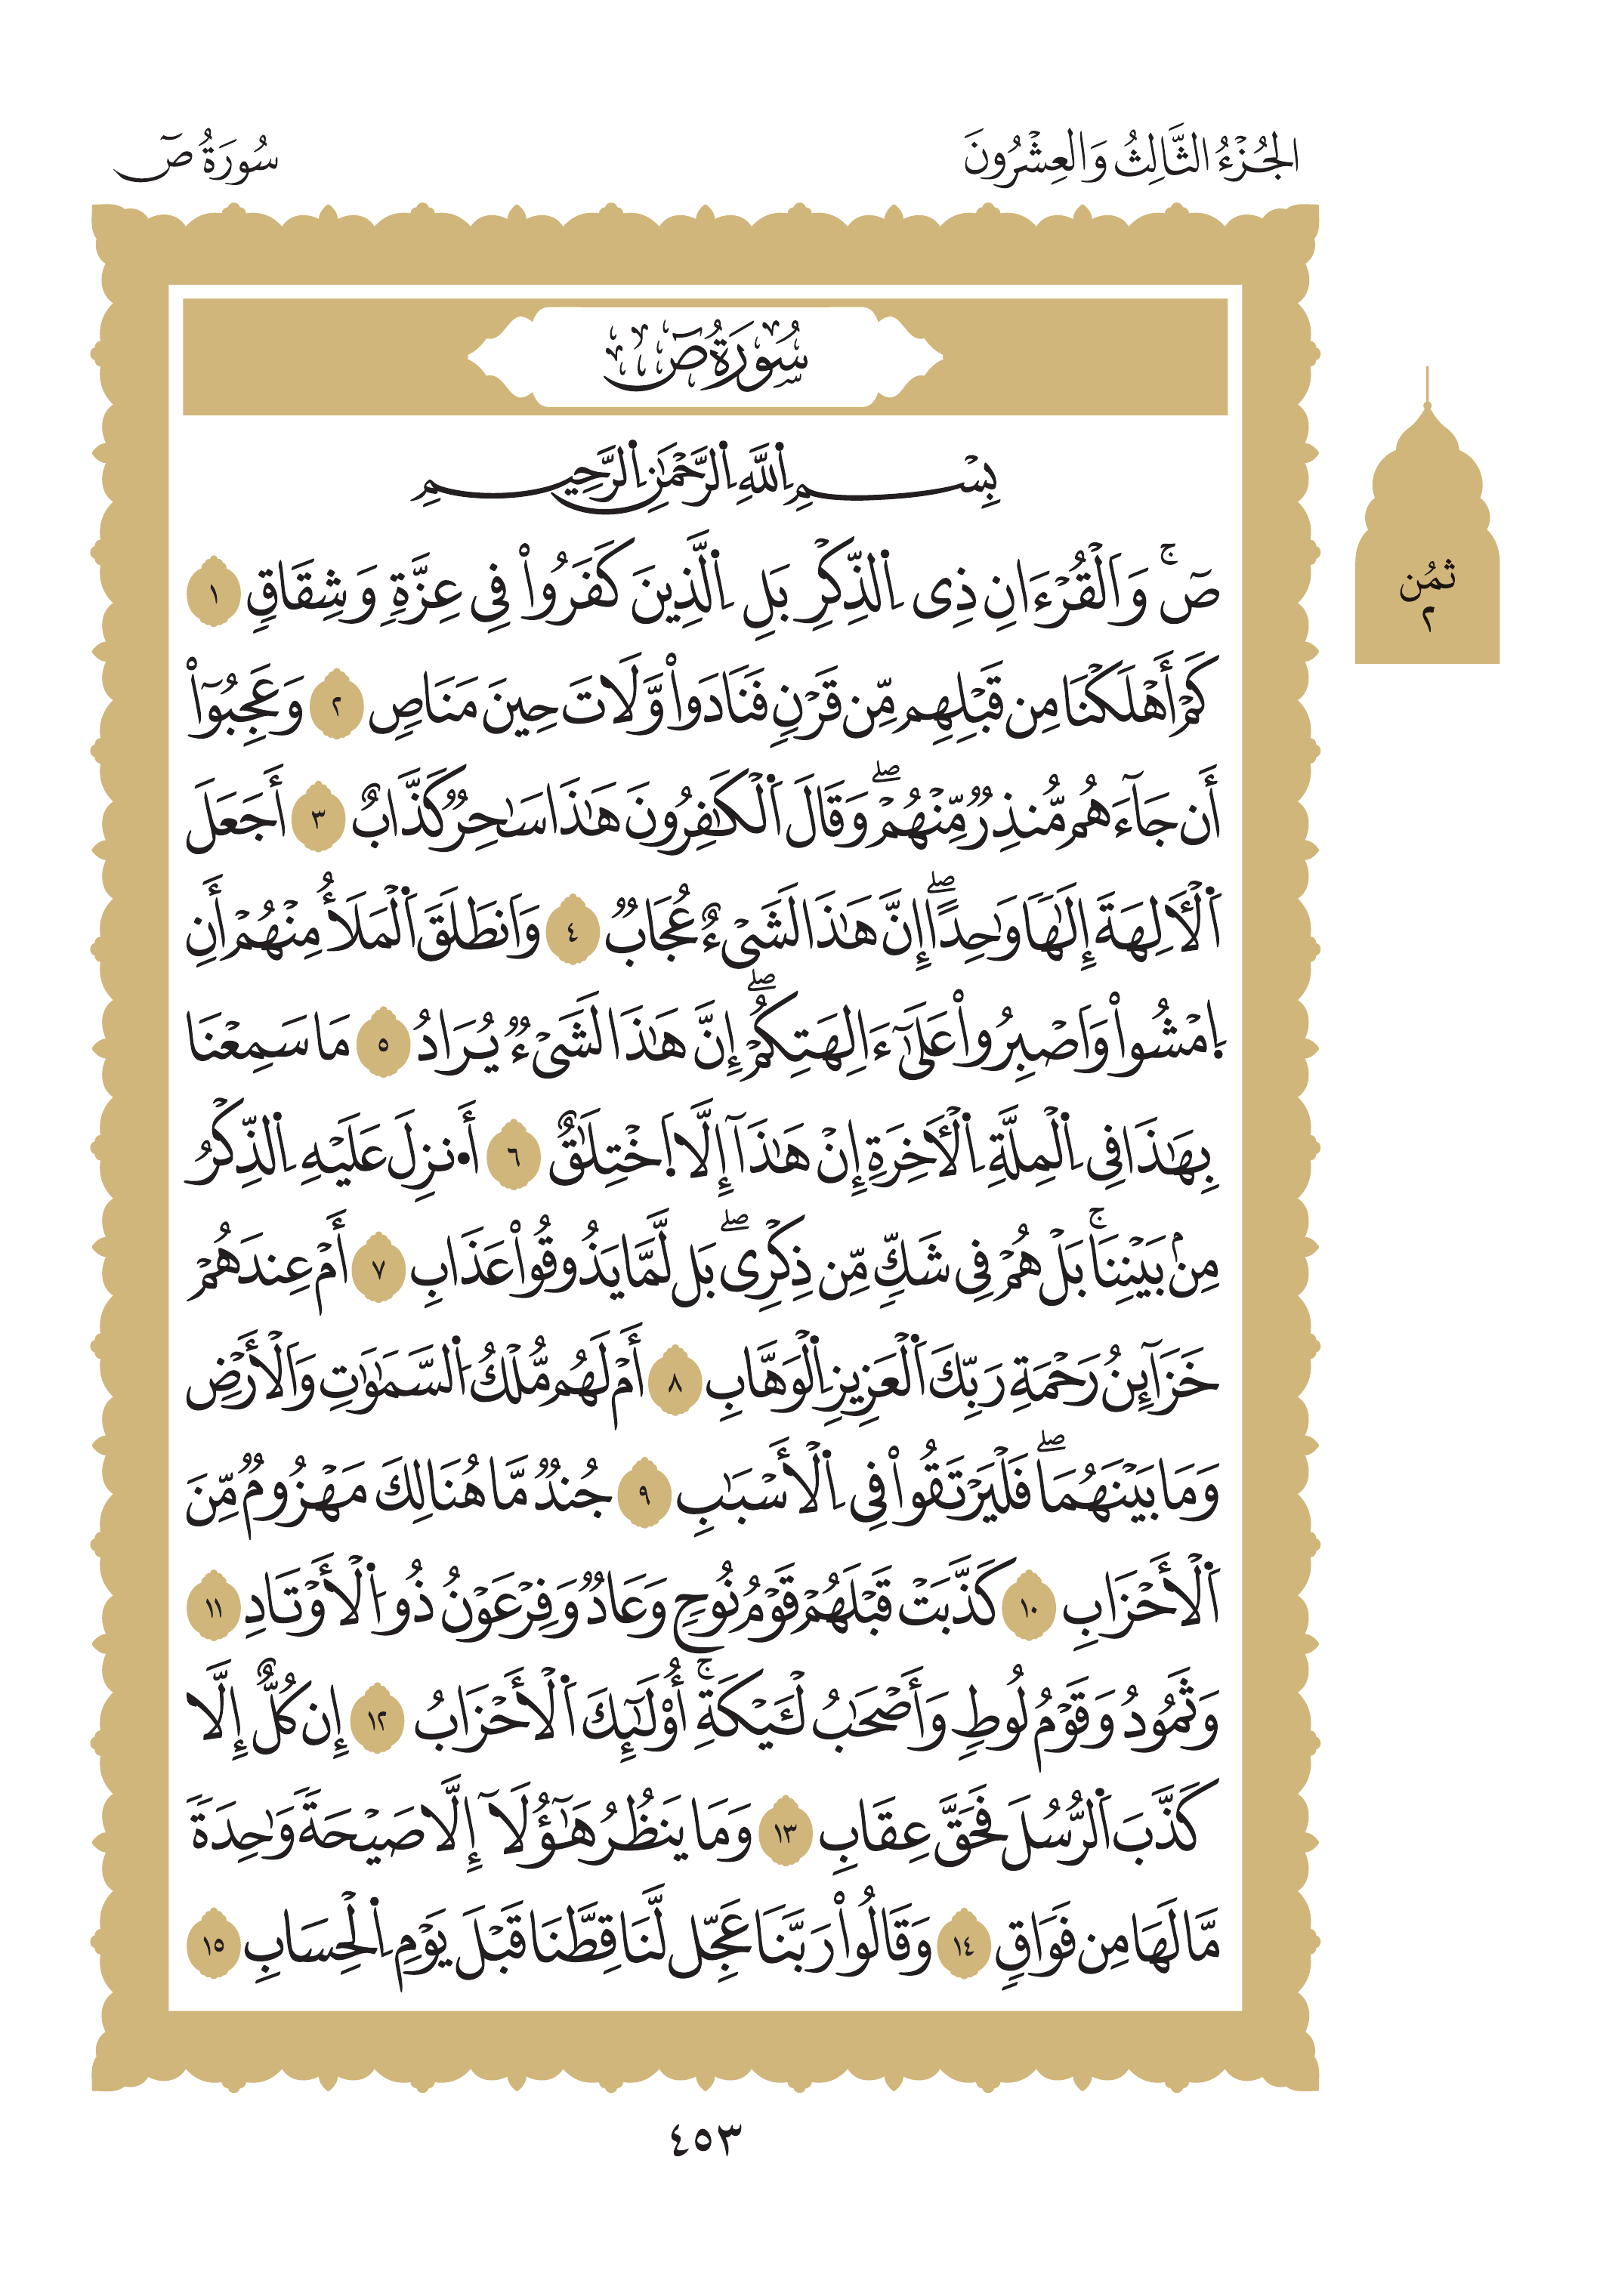 الجُزْءُ الثَّالِثُ وَالعِشْرُونَ
سُورَةُ صٓ
سُورَةُ صٓ
بِسْمِ اِ۬للَّهِ اِ۬لرَّحْمَٰنِ اِ۬لرَّحِيمِ
صٓۚ وَالْقُرْءَانِ ذِى اِ۬لذِّكْرِ بَلِ اِ۬لَّذِينَ كَفَرُواْ فِى عِزَّةٖ وَشِقَاقٖ ١
كَمْ أَهْلَكْنَا مِن قَبْلِهِم مِّن قَرْنٖ فَنَادَواْ وَّلَاتَ حِينَ مَنَاصٖ ٢ وَعَجِبُوٓاْ
أَن جَآءَهُم مُّنذِرٞ مِّنْهُمْۖ وَقَالَ اَ۬لْكَٰفِرُونَ هَٰذَا سَٰحِرٞ كَذَّابٌ ٣ أَجَعَلَ
اَ۬لْأٓلِهَةَ إِلَٰهٗا وَٰحِدًاۖ إِنَّ هَٰذَا لَشَىْءٌ عُجَابٞ ٤ وَانطَلَقَ اَ۬لْمَلَأُ مِنْهُمْ أَنِ
اِ۪مْشُواْ وَاصْبِرُواْ عَلَىٰٓ ءَالِهَتِكُمْۖ إِنَّ هَٰذَا لَشَىْءٞ يُرَادُ ٥ مَا سَمِعْنَا
بِهَٰذَا فِى اِ۬لْمِلَّةِ اِ۬لْأٓخِرَةِ إِنْ هَٰذَآ إِلَّا اَ۪خْتِلَٰقٌ ٦ أَ۟نزِلَ عَلَيْهِ اِ۬لذِّكْرُ
مِنۢ بَيْنِنَاۚ بَلْ هُمْ فِى شَكّٖ مِّن ذِكْرِىۖ بَل لَّمَّا يَذُوقُواْ عَذَابِ ٧ أَمْ عِندَهُمْ
خَزَآئِنُ رَحْمَةِ رَبِّكَ اَ۬لْعَزِيزِ اِ۬لْوَهَّابِ ٨ أَمْ لَهُم مُّلْكُ اُ۬لسَّمَٰوَٰتِ وَالْأَرْضِ
وَمَا بَيْنَهُمَاۖ فَلْيَرْتَقُواْ فِى اِ۬لْأَسْبَٰبِ ٩ جُندٞ مَّا هُنَالِكَ مَهْزُومٞ مِّنَ
اَ۬لْأَحْزَابِ ١٠ كَذَّبَتْ قَبْلَهُمْ قَوْمُ نُوحٖ وَعَادٞ وَفِرْعَوْنُ ذُو اُ۬لْأَوْتَادِ ١١
وَثَمُودُ وَقَوْمُ لُوطٖ وَأَصْحَٰبُ لَـَٔيْكَةِۚ أُوْلَٰٓئِكَ اَ۬لْأَحْزَابُ ١٢ إِن كُلٌّ إِلَّا
كَذَّبَ اَ۬لرُّسُلَ فَحَقَّ عِقَابِ ١٣ وَمَا يَنظُرُ هَٰٓؤُلَآ إِلَّا صَيْحَةٗ وَٰحِدَةٗ
مَّا لَهَا مِن فَوَاقٖ ١٤ وَقَالُواْ رَبَّنَا عَجِّل لَّنَا قِطَّنَا قَبْلَ يَوْمِ اِ۬لْحِسَابِ ١٥
ثُمُن
٢
٤٥٣